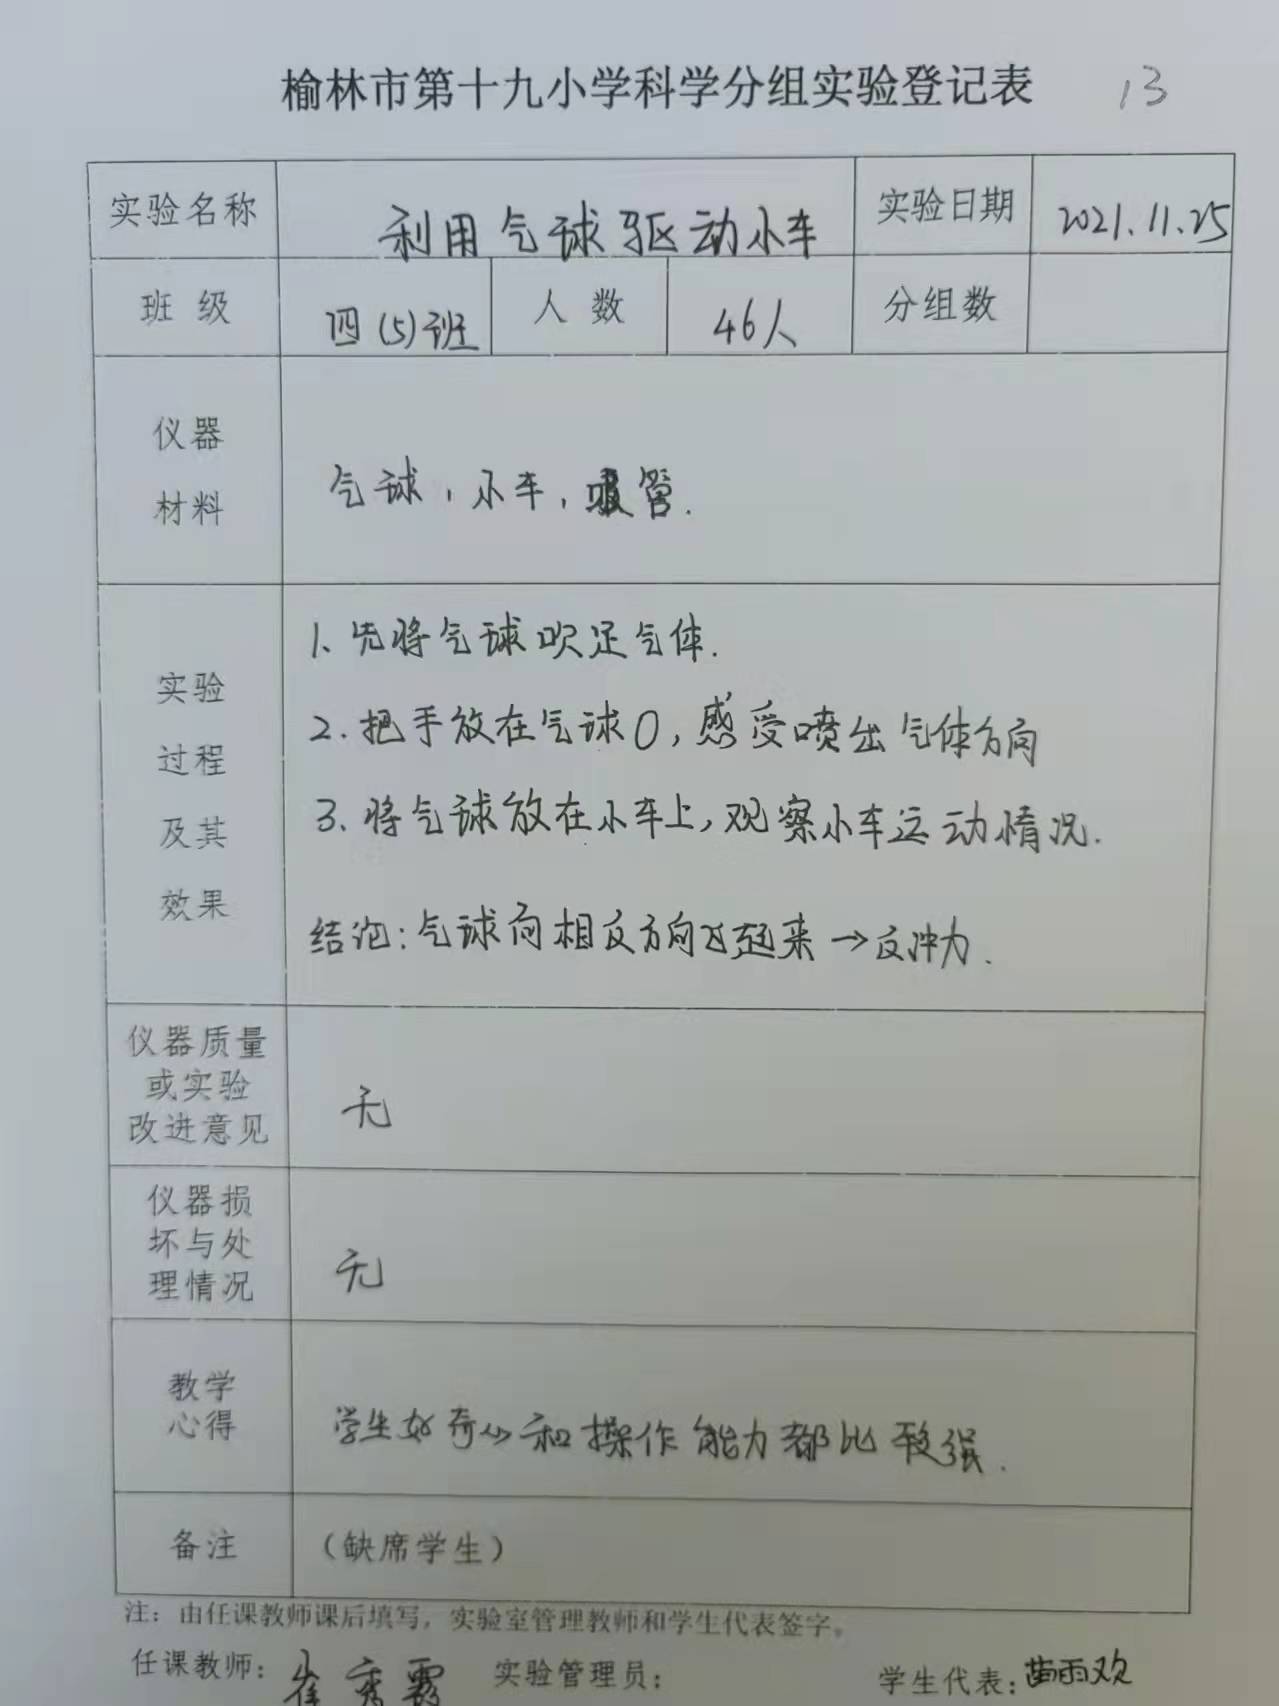 榆林市第十九小学科学分组实验登记表 13
实验名称 利用气球驱动小车 实验日期 2021.11.25
班级 四(5)班 人数 46人 分组数
仪器
材料
气球,小车,吸管.
实验
过程
及其
效果
1、先将气球吹足气体.
2.把手放在气球口,感受喷出气体方向
3、将气球放在小车上,观察小车运动情况.
结论:气球向相反方向飞起来→反冲力.
仪器质量
或实验
改进意见
无
仪器损
坏与处
理情况
无
教学
心得
学生好奇心和操作能力都比较强.
备注 (缺席学生)
注:由任课教师课后填写,实验室管理教师和学生代表签字。
任课教师:崔秀霞 实验管理员: 学生代表:苗雨欢